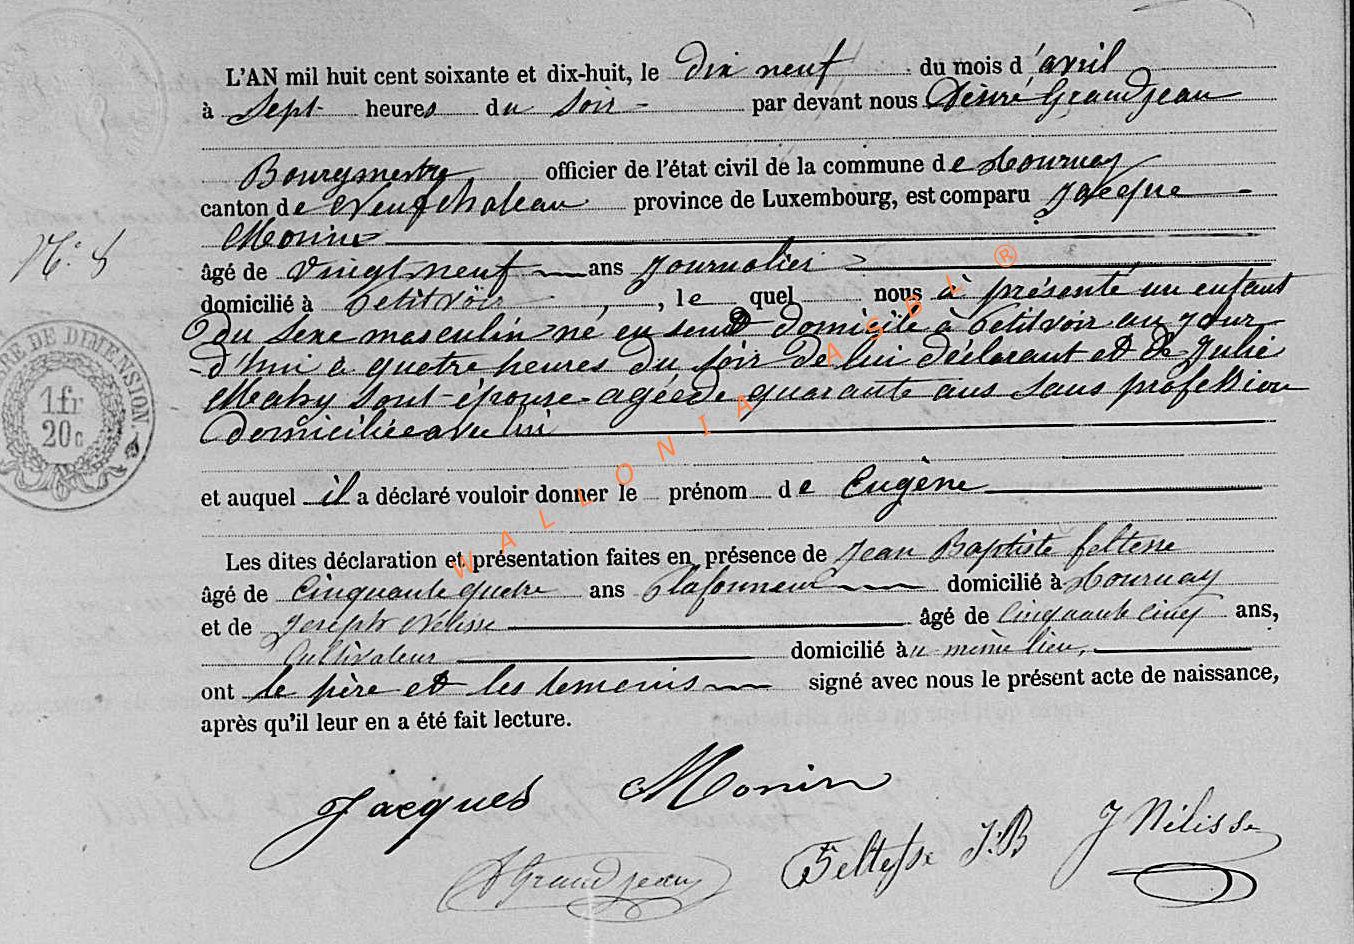 L'AN mil huit cent soixante et dix-huit, le dix neuf du mois d'avril
à Sept heures du soir par devant nous Désiré Grandjean
Bourgmestre officier de l'état civil de la commune de Tournay
canton de Neufchateau province de Luxembourg, est comparu Jacque
Monin
N: 8
âgé de vingt neuf ans Journalier
domicilié à Petitvoir, le quel nous a présenté un enfant
du sexe masculin né en son domicile à Petitvoir au jour
d'hui a quatre heures du soir de lui déclarant et de Julie
Mahy sont épouse agée de quarante ans sans profession
domiciliée avec lui
et auquel il a déclaré vouloir donner le prénom de Eugène
Les dites déclaration et présentation faites en présence de Jean Baptiste feltesse
âgé de Cinquante quatre ans Plafonneur domicilié à Tournay
et de Joseph Nélisse âgé de Cinquante cinq ans,
Cultivateur domicilié au même lieu,
ont le père et les temoins signé avec nous le présent acte de naissance,
après qu'il leur en a été fait lecture.
Jacques Monin
Grandjean Feltesse J.B J Nélisse
RE DE DIMENSION.
1fr
20c
WALLONIA ASBL ®